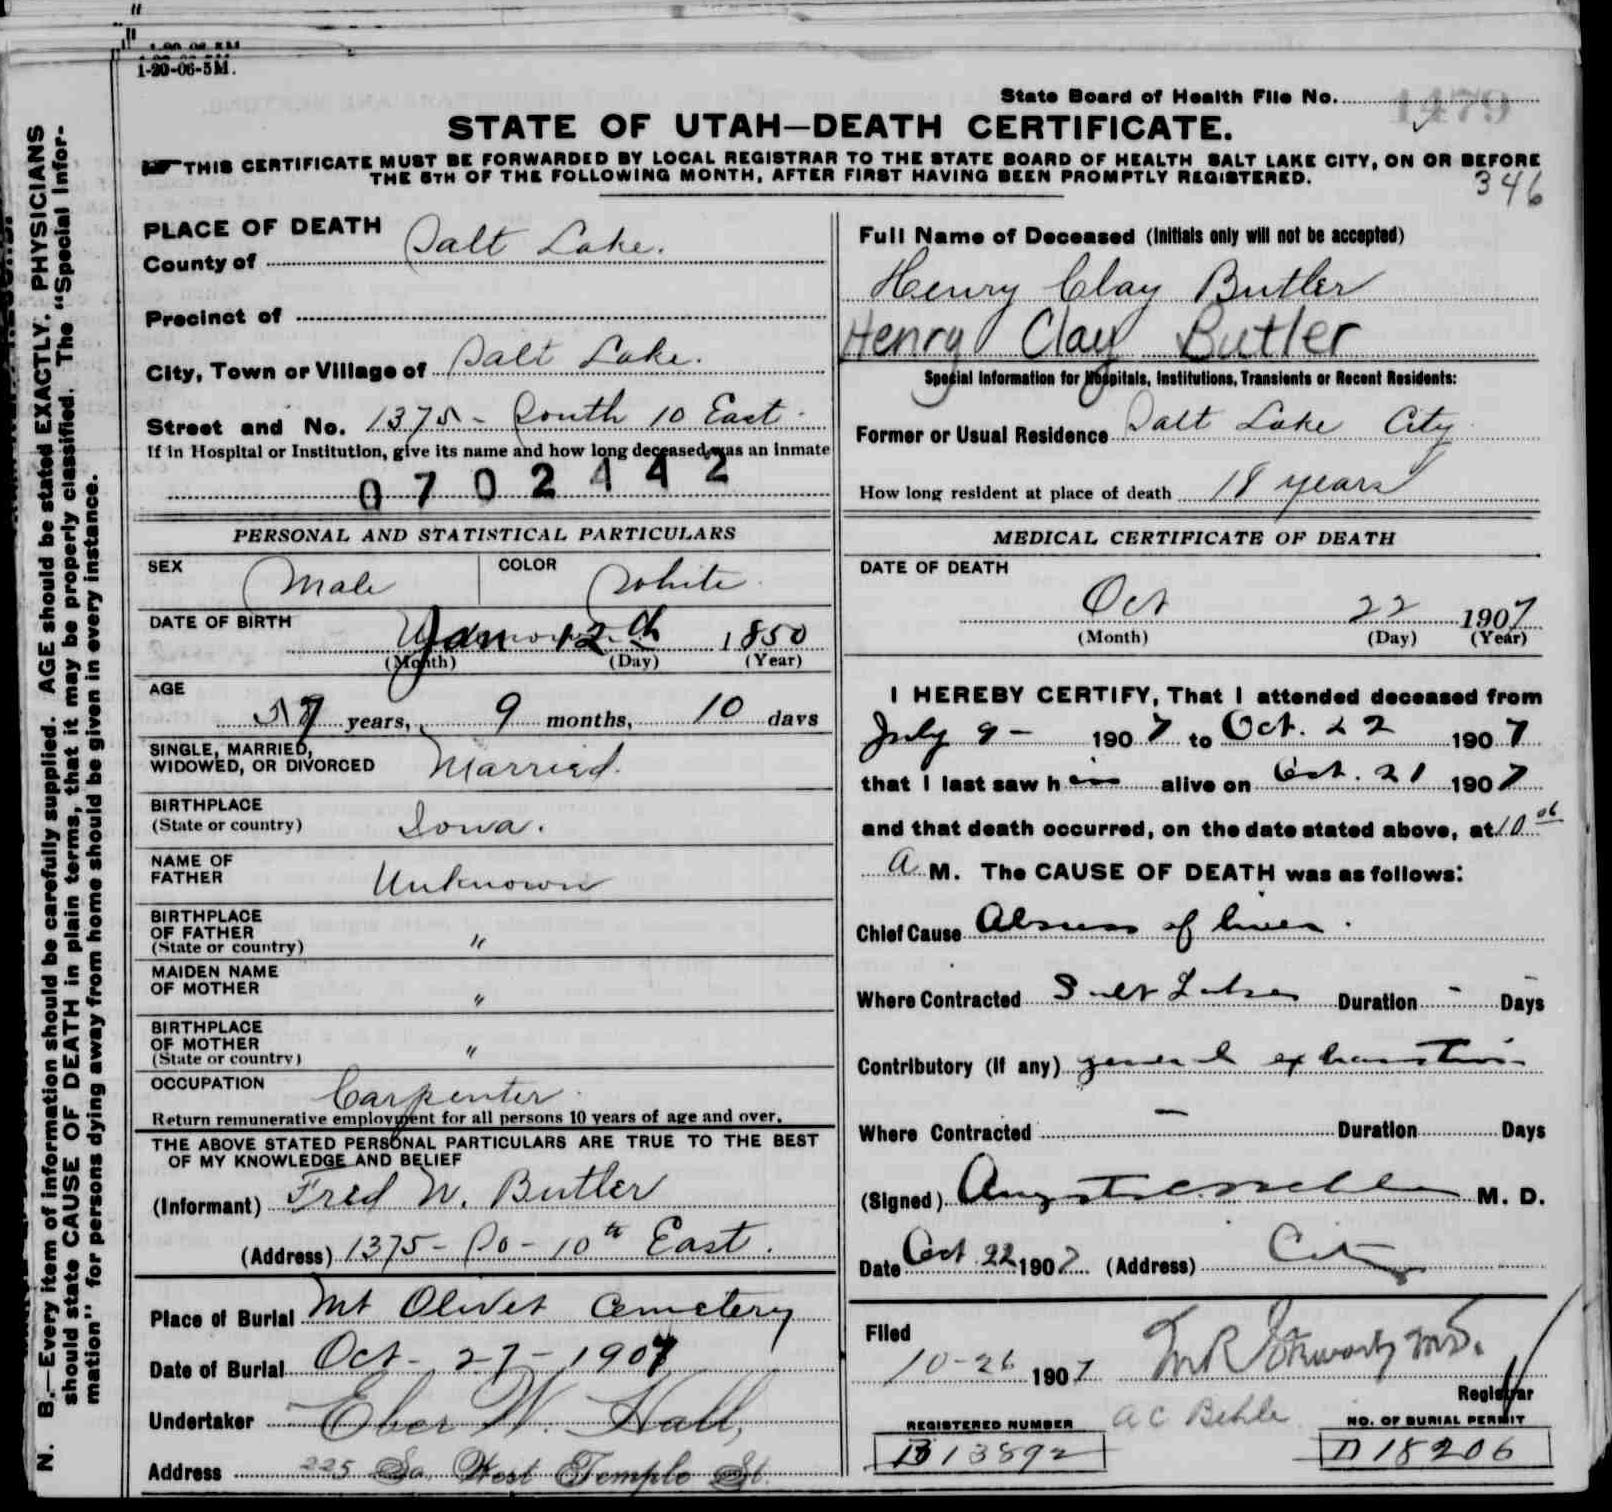 1-20-06-5M.
N. B.—Every item of information should be carefully supplied. AGE should be stated EXACTLY. PHYSICIANS
should state CAUSE OF DEATH in plain terms, that it may be properly classified. The "Special Infor-
mation" for persons dying away from home should be given in every instance.
State Board of Health File No. 1479
STATE OF UTAH—DEATH CERTIFICATE.
THIS CERTIFICATE MUST BE FORWARDED BY LOCAL REGISTRAR TO THE STATE BOARD OF HEALTH SALT LAKE CITY, ON OR BEFORE
THE 5TH OF THE FOLLOWING MONTH, AFTER FIRST HAVING BEEN PROMPTLY REGISTERED.
346
PLACE OF DEATH
County of Salt Lake.
Precinct of
City, Town or Village of Salt Lake.
Street and No. 1375 - South 10 East.
If in Hospital or Institution, give its name and how long deceased was an inmate
0702442
PERSONAL AND STATISTICAL PARTICULARS
SEX Male COLOR White
DATE OF BIRTH
Jan 12th 1850
(Month) (Day) (Year)
AGE
57 years, 9 months, 10 days
SINGLE, MARRIED,
WIDOWED, OR DIVORCED Married.
BIRTHPLACE
(State or country) Iowa.
NAME OF
FATHER Unknown
BIRTHPLACE
OF FATHER
(State or country) "
MAIDEN NAME
OF MOTHER "
BIRTHPLACE
OF MOTHER
(State or country) "
OCCUPATION Carpenter
Return remunerative employment for all persons 10 years of age and over.
THE ABOVE STATED PERSONAL PARTICULARS ARE TRUE TO THE BEST
OF MY KNOWLEDGE AND BELIEF
(Informant) Fred W. Butler
(Address) 1375 - So - 10th East.
Place of Burial Mt Olivet Cemetery
Date of Burial Oct - 27 - 1907
Undertaker Eber W. Hall,
Address 225 So. West Temple St.
Full Name of Deceased (Initials only will not be accepted)
Henry Clay Butler
Henry Clay Butler
Special Information for Hospitals, Institutions, Transients or Recent Residents:
Former or Usual Residence Salt Lake City
How long resident at place of death 18 years
MEDICAL CERTIFICATE OF DEATH
DATE OF DEATH
Oct 22 1907
(Month) (Day) (Year)
I HEREBY CERTIFY, That I attended deceased from
July 9 - 1907 to Oct. 22 1907
that I last saw him alive on Oct. 21 1907
and that death occurred, on the date stated above, at 10
A M. The CAUSE OF DEATH was as follows:
Chief Cause Abscess of liver.
Where Contracted Salt Lake Duration - Days
Contributory (if any) general exhaustion
Where Contracted — Duration Days
(Signed) M. D.
Date Oct 22 1907 (Address) City
Filed
10-26 1907
Registrar
REGISTERED NUMBER A C Behle NO. OF BURIAL PERMIT
B13892 D18206